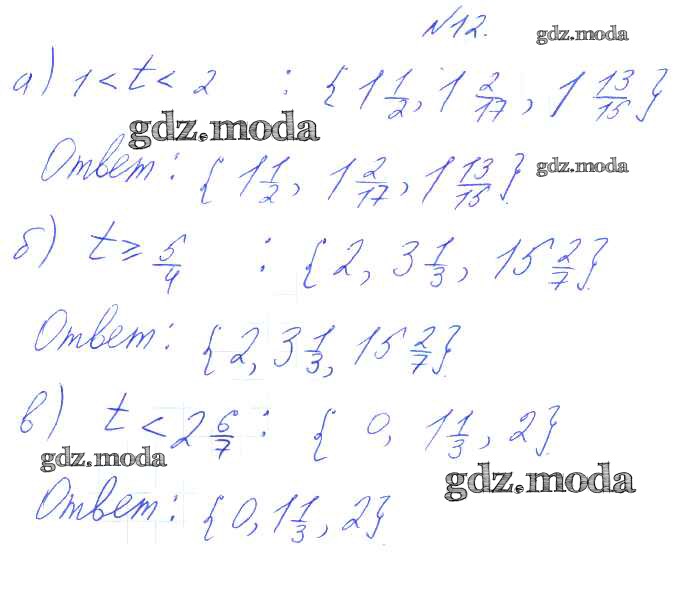 №12. gdz.moda
а) 1 < t < 2 : {1 1/2, 1 2/17, 1 13/15}
gdz.moda
Ответ: {1 1/2, 1 2/17, 1 13/15} gdz.moda
б) t ≥ 5/4 : {2, 3 1/3, 15 2/7}
Ответ: {2, 3 1/3, 15 2/7}
в) t < 2 6/7 : {0, 1 1/3, 2}
gdz.moda
gdz.moda
Ответ: {0, 1 1/3, 2}